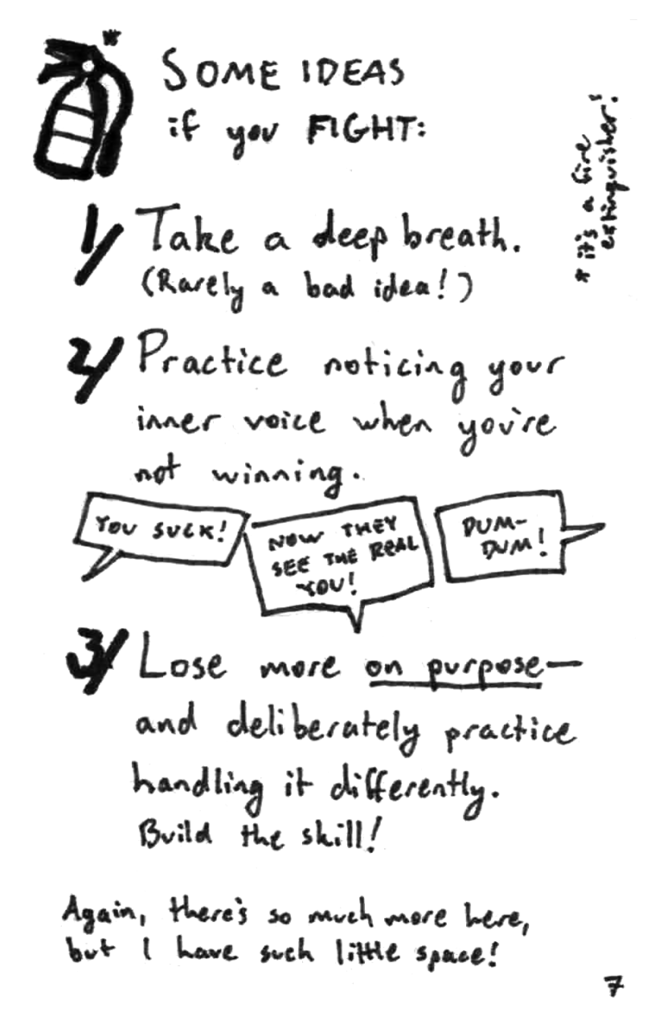 *
SOME IDEAS
if you FIGHT:
* it's a fire
extinguisher!
1/ Take a deep breath.
(Rarely a bad idea!)
2/ Practice noticing your
inner voice when you're
not winning.
YOU SUCK!
NOW THEY
SEE THE REAL
YOU!
DUM-
DUM!
3/ Lose more on purpose—
and deliberately practice
handling it differently.
Build the skill!
Again, there's so much more here,
but I have such little space!
7